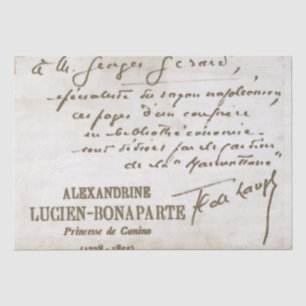 à M. Georges Gérard,
spécialiste du rayon napoléonien,
ces pages d'un confrère
en bibliothéconomie
sont dédiées par le gardien
de la "Marmottane"
ALEXANDRINE
LUCIEN-BONAPARTE
Princesse de Canino
(1778 - 1855)